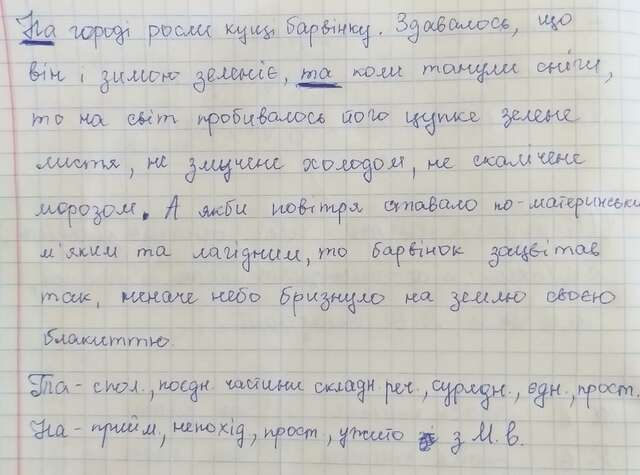 На городі росли кущі барвінку. Здавалось, що
він і зимою зеленіє, та коли танули сніги,
то на світ пробивалось його цупке зелене
листя, не змучене холодом, не скалічене
морозом. А якби повітря ставало по-материнськи
м'яким та лагідним, то барвінок зацвітав
так, неначе небо бризнуло на землю своєю
блакиттю.
Та - спол., поєдн. частини складн. реч., сурядн., єдн., прост.
На - прийм, непохід, прост., ужито з М. в.